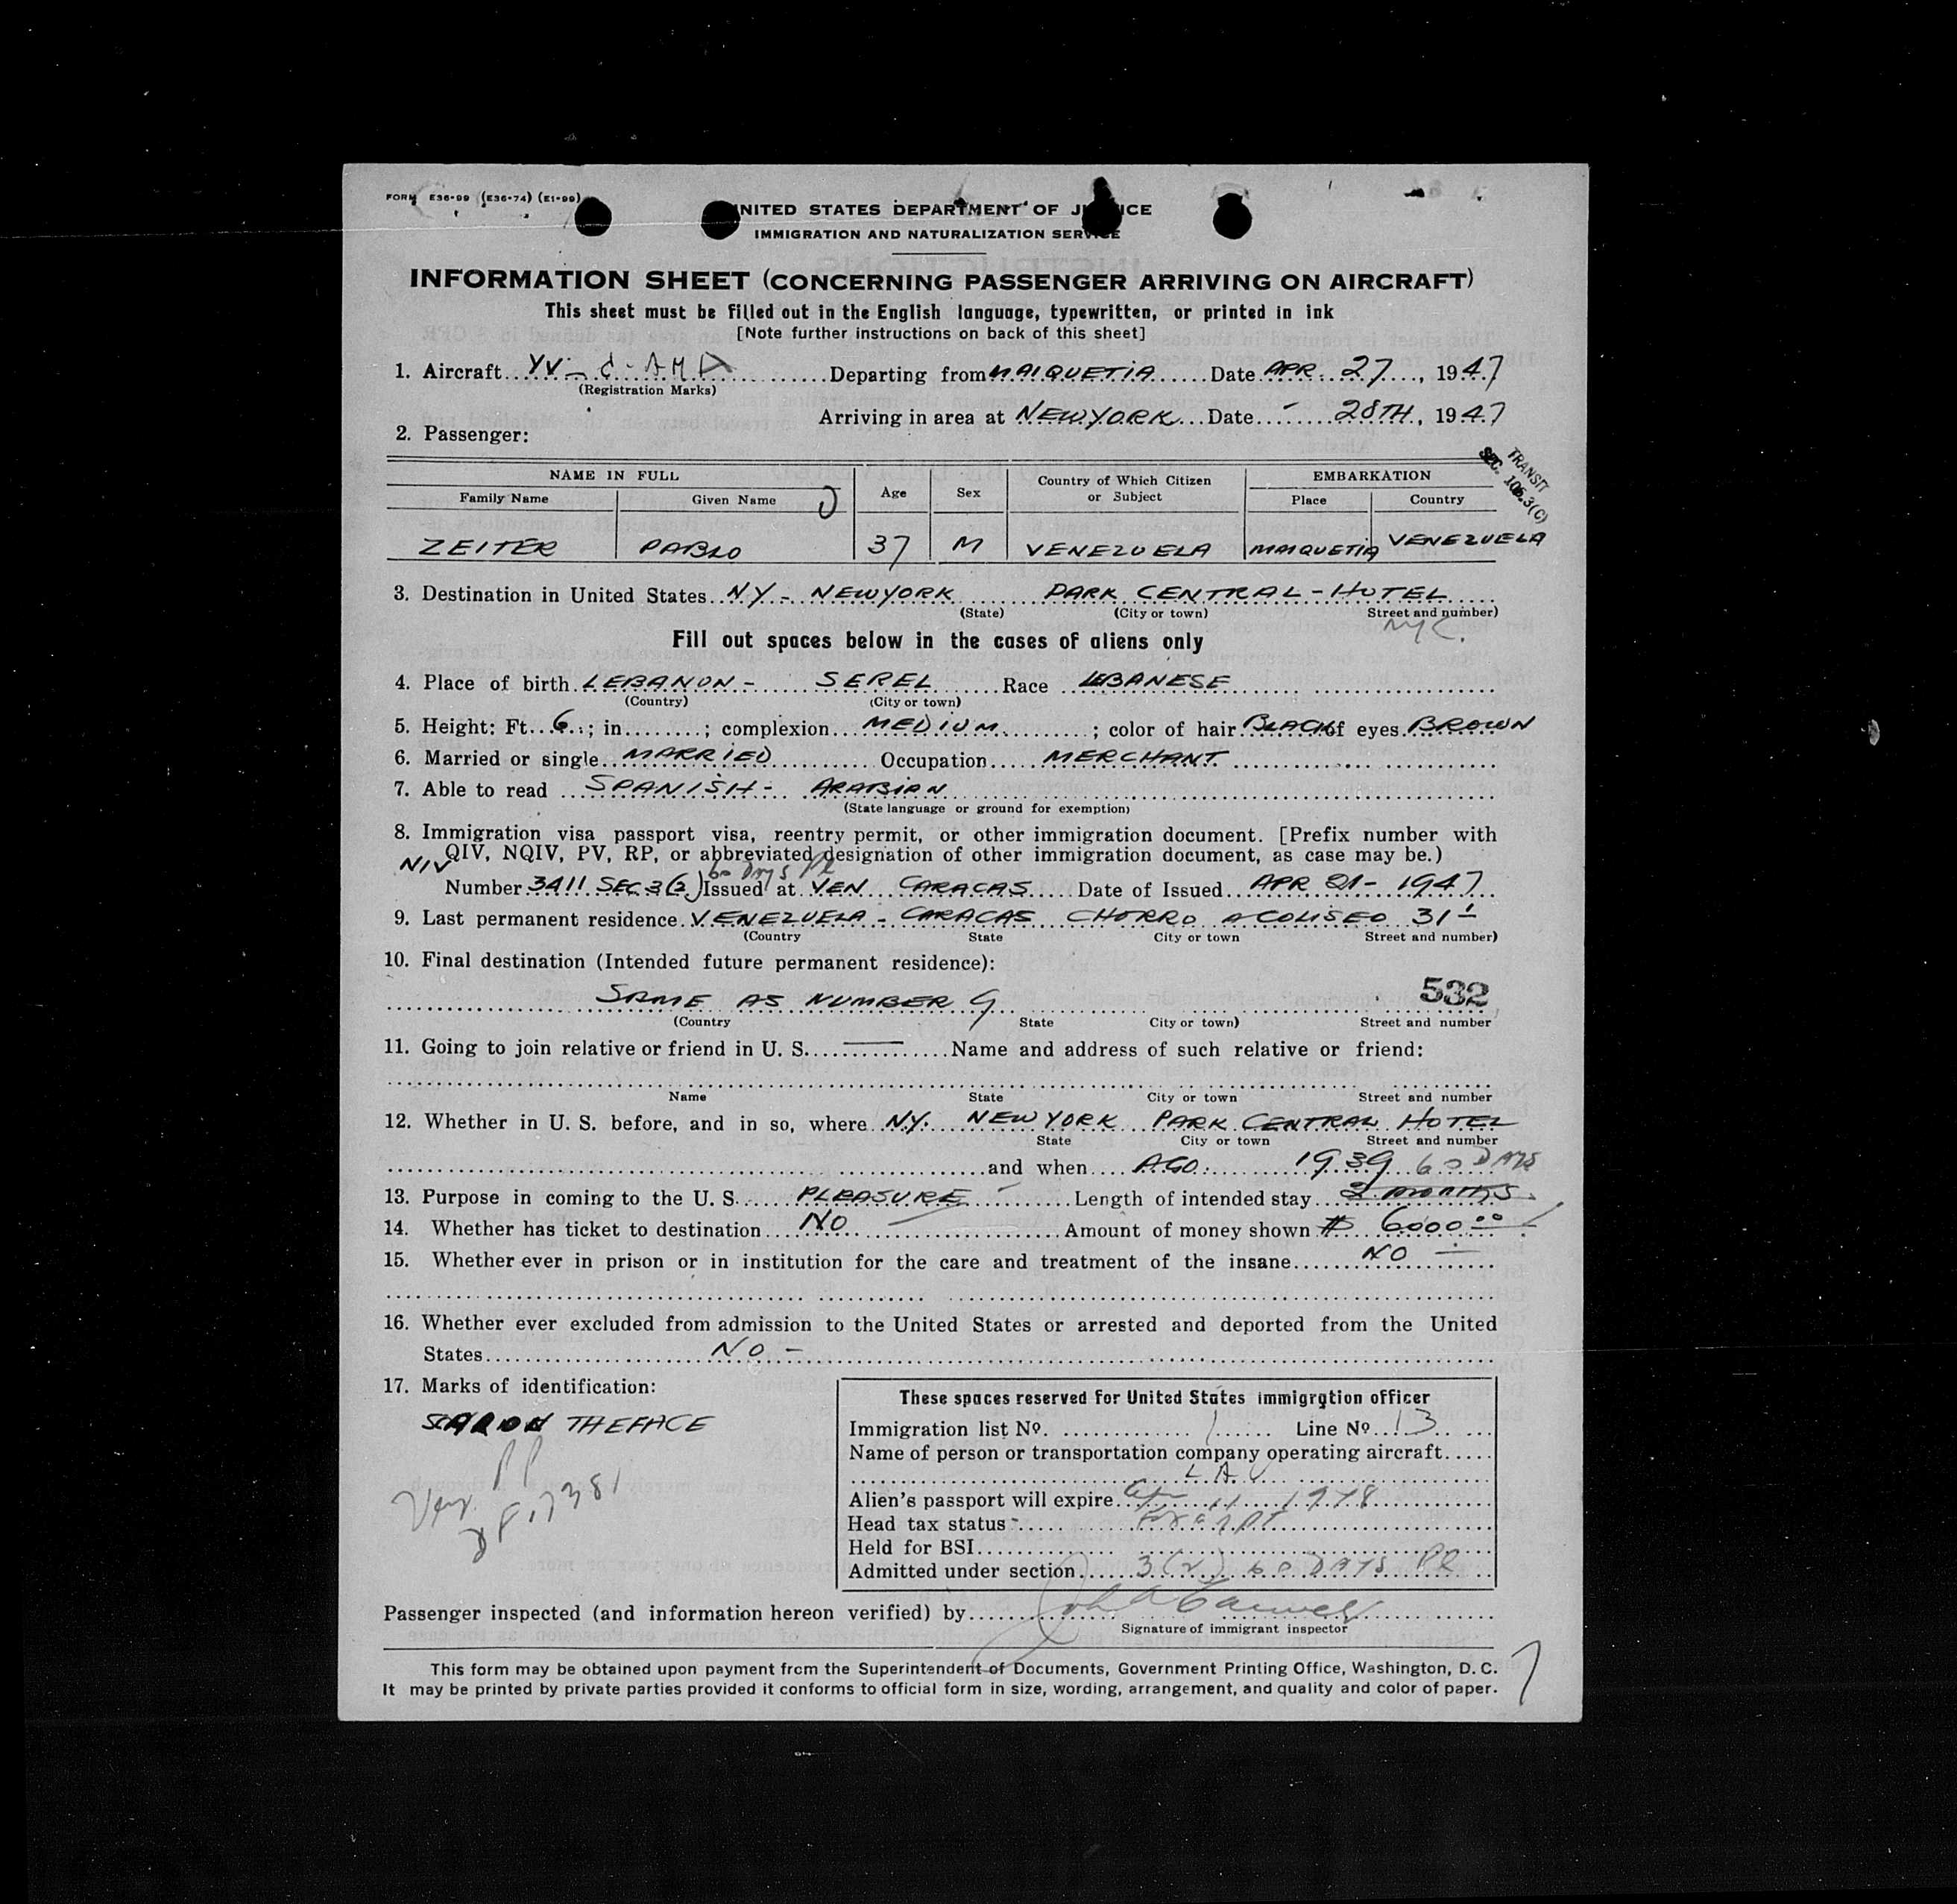 FORM E36-99 (E36-74) (E1-99)
UNITED STATES DEPARTMENT OF JUSTICE
IMMIGRATION AND NATURALIZATION SERVICE
INFORMATION SHEET (CONCERNING PASSENGER ARRIVING ON AIRCRAFT)
This sheet must be filled out in the English language, typewritten, or printed in ink
[Note further instructions on back of this sheet]
1. Aircraft YV-C-AMA Departing from MAIQUETIA Date APR. 27, 1947
(Registration Marks)
Arriving in area at NEWYORK Date - 28TH, 1947
2. Passenger:
TRANSIT
SEC. 106.3(C)
NAME IN FULL Age Sex Country of Which Citizen or Subject EMBARKATION
Family Name Given Name Place Country
ZEITER PABLO 37 M VENEZUELA MAIQUETIA VENEZUELA
3. Destination in United States NY - NEWYORK PARK CENTRAL-HOTEL
(State) (City or town) Street and number)
NYC.
Fill out spaces below in the cases of aliens only
4. Place of birth LEBANON - SEREL Race LEBANESE
(Country) (City or town)
5. Height: Ft. 6 ; in ; complexion MEDIUM ; color of hair BLACK of eyes BROWN
6. Married or single MARRIED Occupation MERCHANT
7. Able to read SPANISH - ARABIAN
(State language or ground for exemption)
8. Immigration visa passport visa, reentry permit, or other immigration document. [Prefix number with
QIV, NQIV, PV, RP, or abbreviated designation of other immigration document, as case may be.)
NIV 60 DAYS PR
Number 3411 SEC 3(2) Issued at VEN CARACAS Date of Issued APR 21- 1947
9. Last permanent residence VENEZUELA - CARACAS CHORRO A COLISEO 31
(Country State City or town Street and number)
10. Final destination (Intended future permanent residence):
SAME AS NUMBER 9 532
(Country State City or town) Street and number
11. Going to join relative or friend in U. S. — Name and address of such relative or friend:
Name State City or town Street and number
12. Whether in U. S. before, and in so, where NY. NEWYORK PARK CENTRAL HOTEL
State City or town Street and number
and when AGO. 1939 60 DAYS
13. Purpose in coming to the U. S. PLEASURE Length of intended stay 2 MONTHS.
14. Whether has ticket to destination NO Amount of money shown $ 6000.00
15. Whether ever in prison or in institution for the care and treatment of the insane NO -
16. Whether ever excluded from admission to the United States or arrested and deported from the United
States NO -
17. Marks of identification:
THEFACE
PP
These spaces reserved for United States immigration officer
Immigration list No. 1 Line No. 13
Name of person or transportation company operating aircraft
L A V
Alien's passport will expire 11 1948
Head tax status - Exempt
Held for BSI
Admitted under section 3(2) 60 DAYS PR
Passenger inspected (and information hereon verified) by
Signature of immigrant inspector
This form may be obtained upon payment from the Superintendent of Documents, Government Printing Office, Washington, D. C.
It may be printed by private parties provided it conforms to official form in size, wording, arrangement, and quality and color of paper.